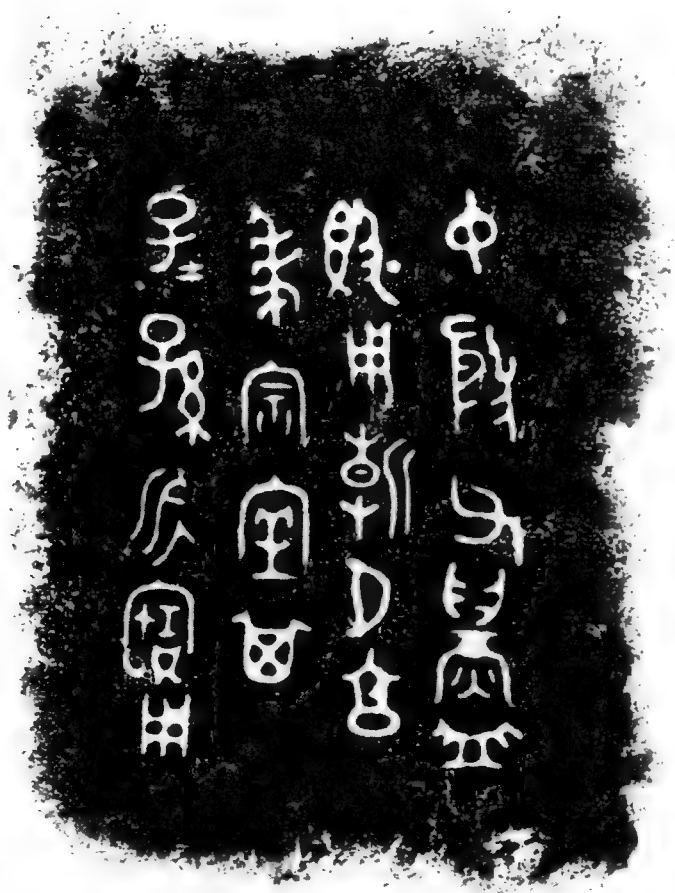 中殷父鑄
𣪘用朝夕享
孝宗室其
子〻孫永寶用